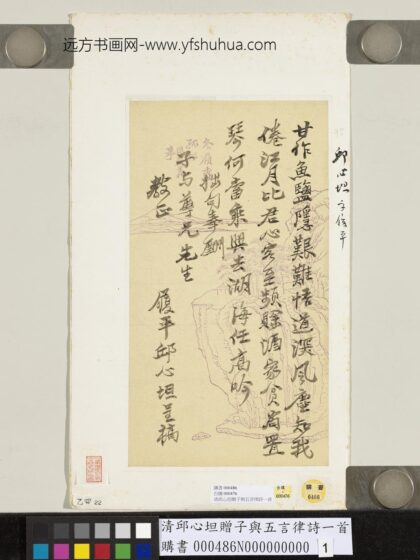 远方书画网-www.yfshuhua.com
邱心坦 字履平
甘作魚鹽隱艱難悟道深風塵知我
倦江月比君心客至頻賒酒家貧尚置
琴何當乘興去湖海任高吟
拙句奉酬
子与尊兄先生
教正
履平邱心坦呈稿
購書 000486
購書
0486
乙帶 22
清邱心坦贈子與五言律詩一首
購書 000486N000000000
1